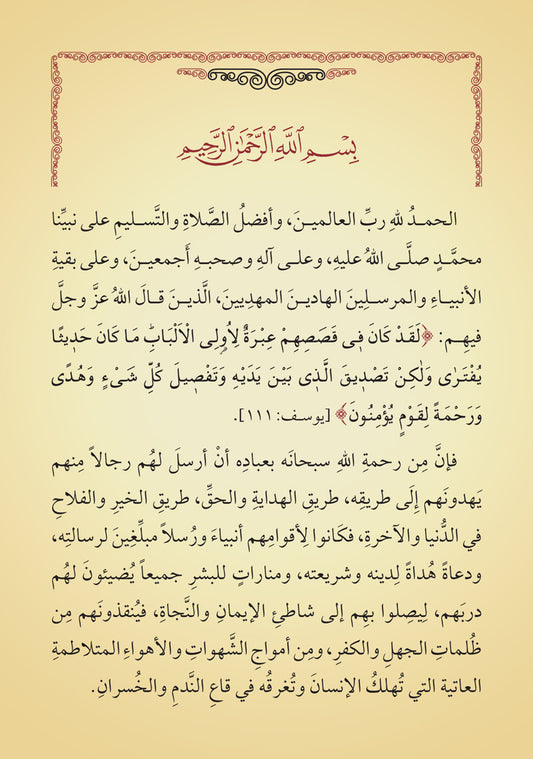 بِسْمِ ٱللَّهِ ٱلرَّحْمَٰنِ ٱلرَّحِيمِ
الحمـدُ للهِ ربِّ العالميـنَ، وأفضلُ الصَّلاةِ والتَّسـليمِ على نبيِّنا
محمَّـدٍ صلَّـى اللهُ عليهِ، وعلـى آلهِ وصحبـهِ أَجمعيـنَ، وعلى بقيةِ
الأنبيـاءِ والمرسـلِينَ الهاديـنَ المهدِيينَ، الَّذيـنَ قـالَ اللهُ عزَّ وجلَّ
فيهِـم: ﴿لَقَدْ كَانَ فِى قَصَصِهِمْ عِبْرَةٌ لِأُولِى الْأَلْبَابِۗ مَا كَانَ حَدِيثًا
يُفْتَرٰى وَلٰكِنْ تَصْدِيقَ الَّذِى بَيْنَ يَدَيْهِ وَتَفْصِيلَ كُلِّ شَىْءٍ وَهُدًى
وَرَحْمَةً لِقَوْمٍ يُؤْمِنُونَ﴾ [يوسـف: ١١١].
فإنَّ مِن رحمةِ اللهِ سبحانَه بعبادِه أنْ أرسلَ لهُم رجالاً مِنهم
يَهدونَهم إِلَى طريقِه، طريقِ الهدايةِ والحقِّ، طريقِ الخيرِ والفلاحِ
في الدُّنيا والآخرةِ، فكَانوا لِأقوامِهم أنبياءَ ورُسلاً مبلِّغِينَ لرسالتِه،
ودعاةً هُداةً لِدينه وشريعته، ومناراتٍ للبشرِ جميعاً يُضيئونَ لهُم
دربَهم، لِيصِلوا بهِم إلى شاطئِ الإيمانِ والنَّجاةِ، فيُنقذونَهم مِن
ظُلماتِ الجهلِ والكفرِ، ومِن أمواجِ الشَّهواتِ والأهواءِ المتلاطمةِ
العاتية التي تُهلكُ الإنسانَ وتُغرقُه في قاعِ النَّدمِ والخُسرانِ.